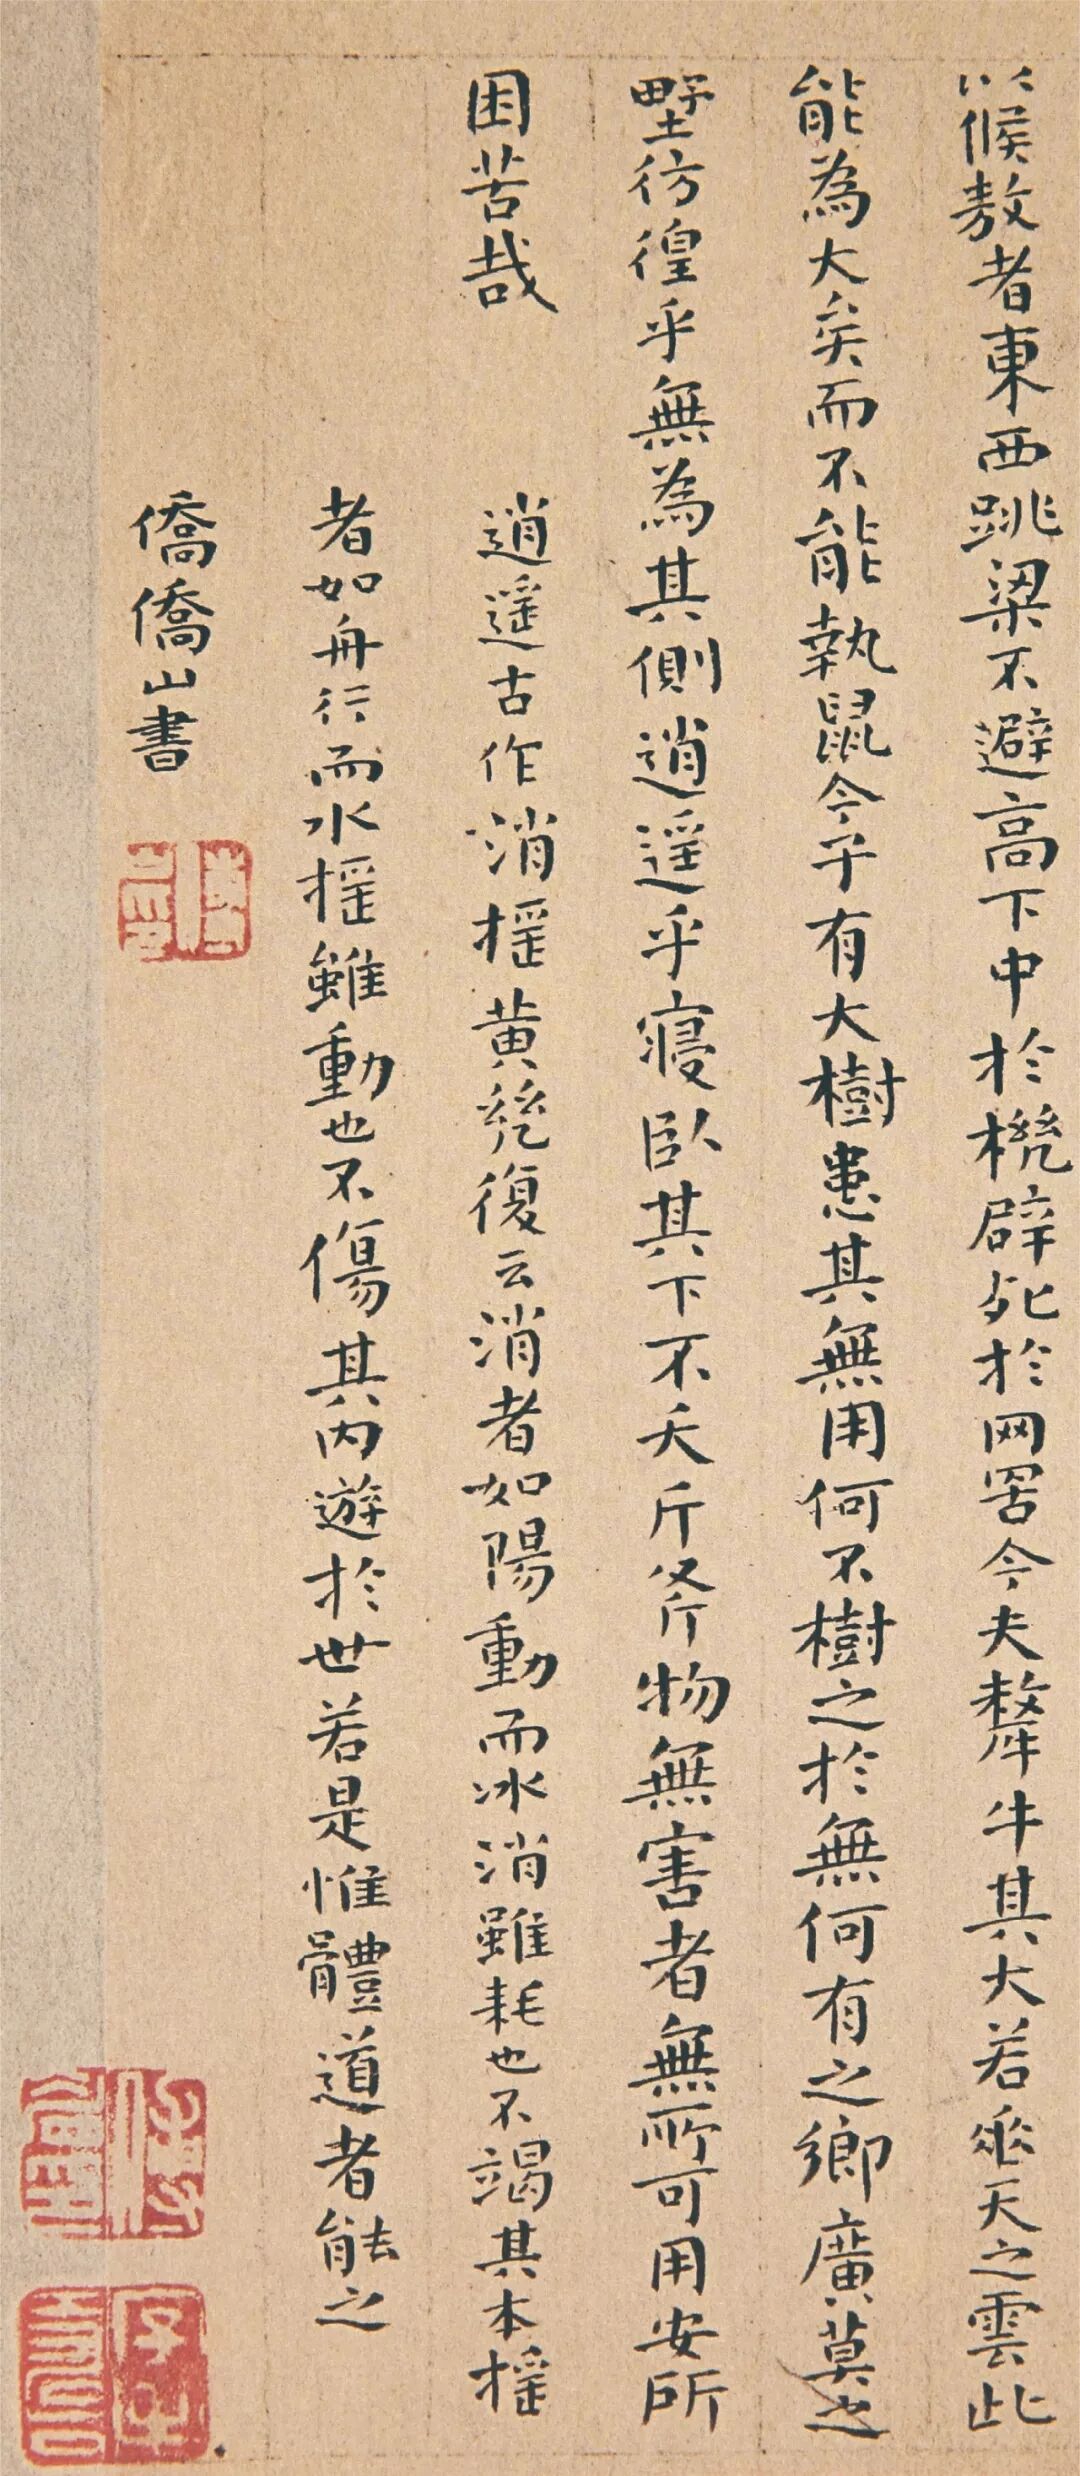 以候敖者東西跳梁不避高下中於機辟死於网罟今夫斄牛其大若垂天之雲此
能為大矣而不能執鼠今子有大樹患其無用何不樹之於無何有之鄉廣莫之
野彷徨乎無為其側逍遥乎寝臥其下不夭斤斧物無害者無所可用安所
困苦哉
逍遥古作消揺黄幾復云消者如陽動而冰消雖耗也不竭其本揺
者如舟行而水揺雖動也不傷其内遊於世若是惟體道者能之
僑僑山書